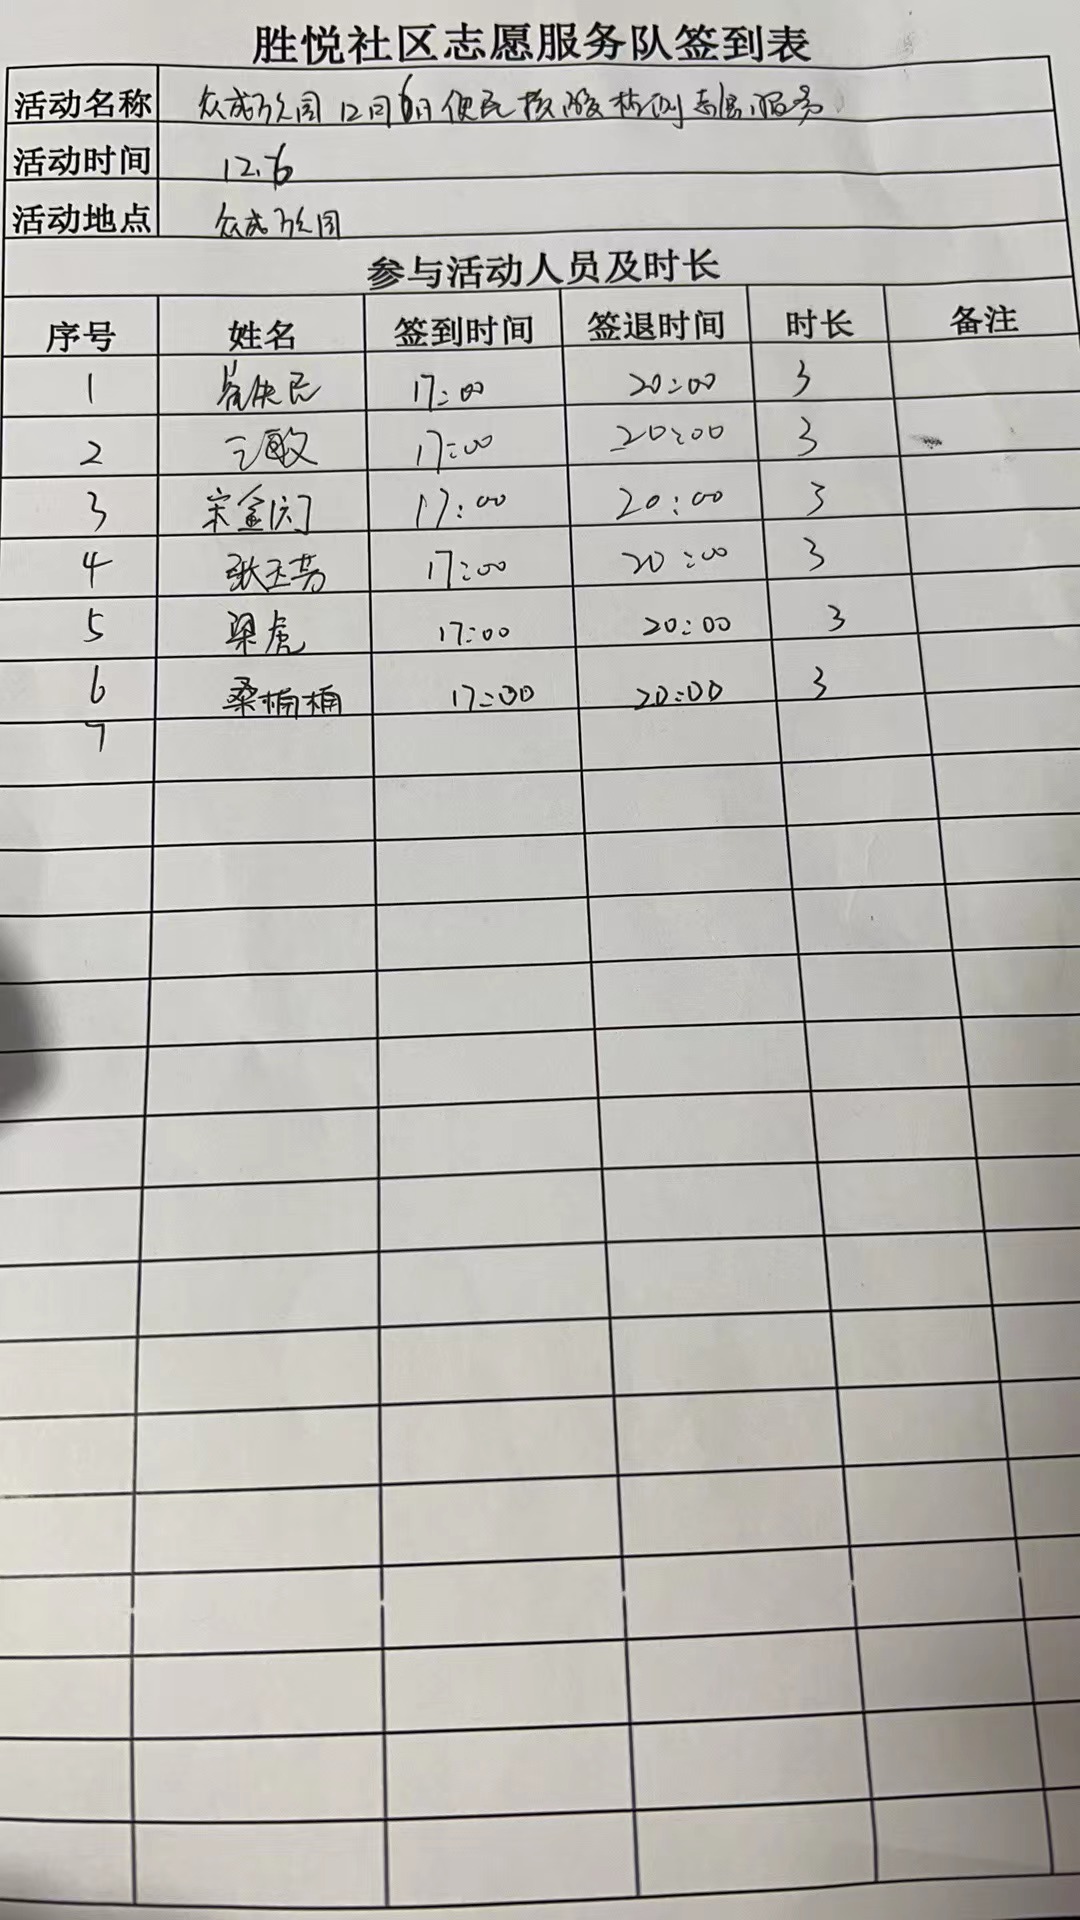 胜悦社区志愿服务队签到表
活动名称 众成 12月6日便民核酸检测志愿服务
活动时间 12.6
活动地点 众成
参与活动人员及时长
序号 姓名 签到时间 签退时间 时长 备注
1 17:00 20:00 3
2 王敏 17:00 20:00 3
3 17:00 20:00 3
4 张玉芳 17:00 20:00 3
5 梁虎 17:00 20:00 3
6 桑楠楠 17:00 20:00 3
7